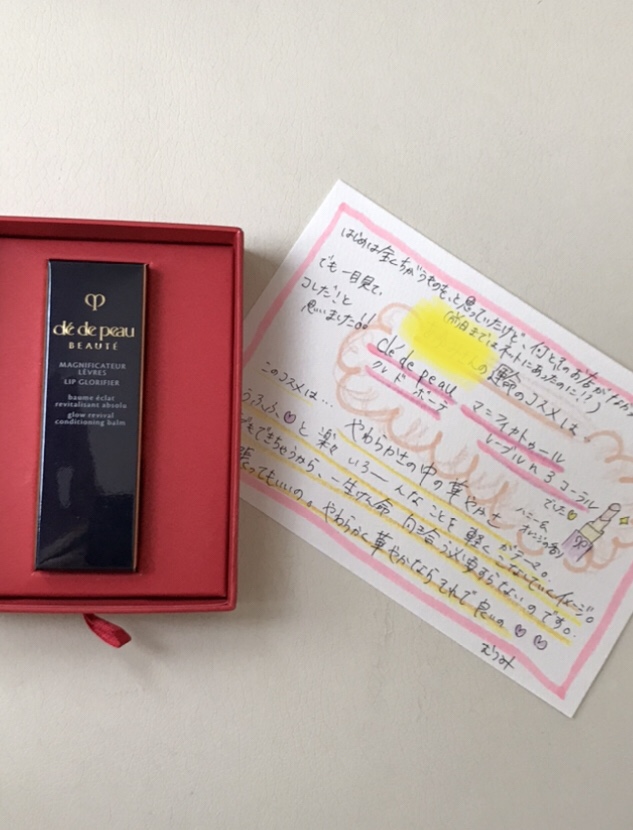 clé de peau
BEAUTÉ
MAGNIFICATEUR
LÈVRES
LIP GLORIFIER
baume éclat
revitalisant absolu
glow revival
conditioning balm
はじめは全くちがうものも、と思っていたけど、何とその方がなかった
(前日まではネットにあったのに!?)
でも一目見て、
コレだ!と
思いました!!
の運命のコスメは、
clé de peau
クレ ド ポーテ
マニフィカトゥール
レーブル n 3 コーラル
でした
このコスメは…
やわらかさの中の華やかさ
ハニー&
オレンジの香り
うふふ♡と楽し
いろーんなことを軽く
こなしていくイメージ。
もできちゃうから、一生けん命
向き合う必要すらないのです。
ってもいいの。やわらかく華やかならそれで良いの